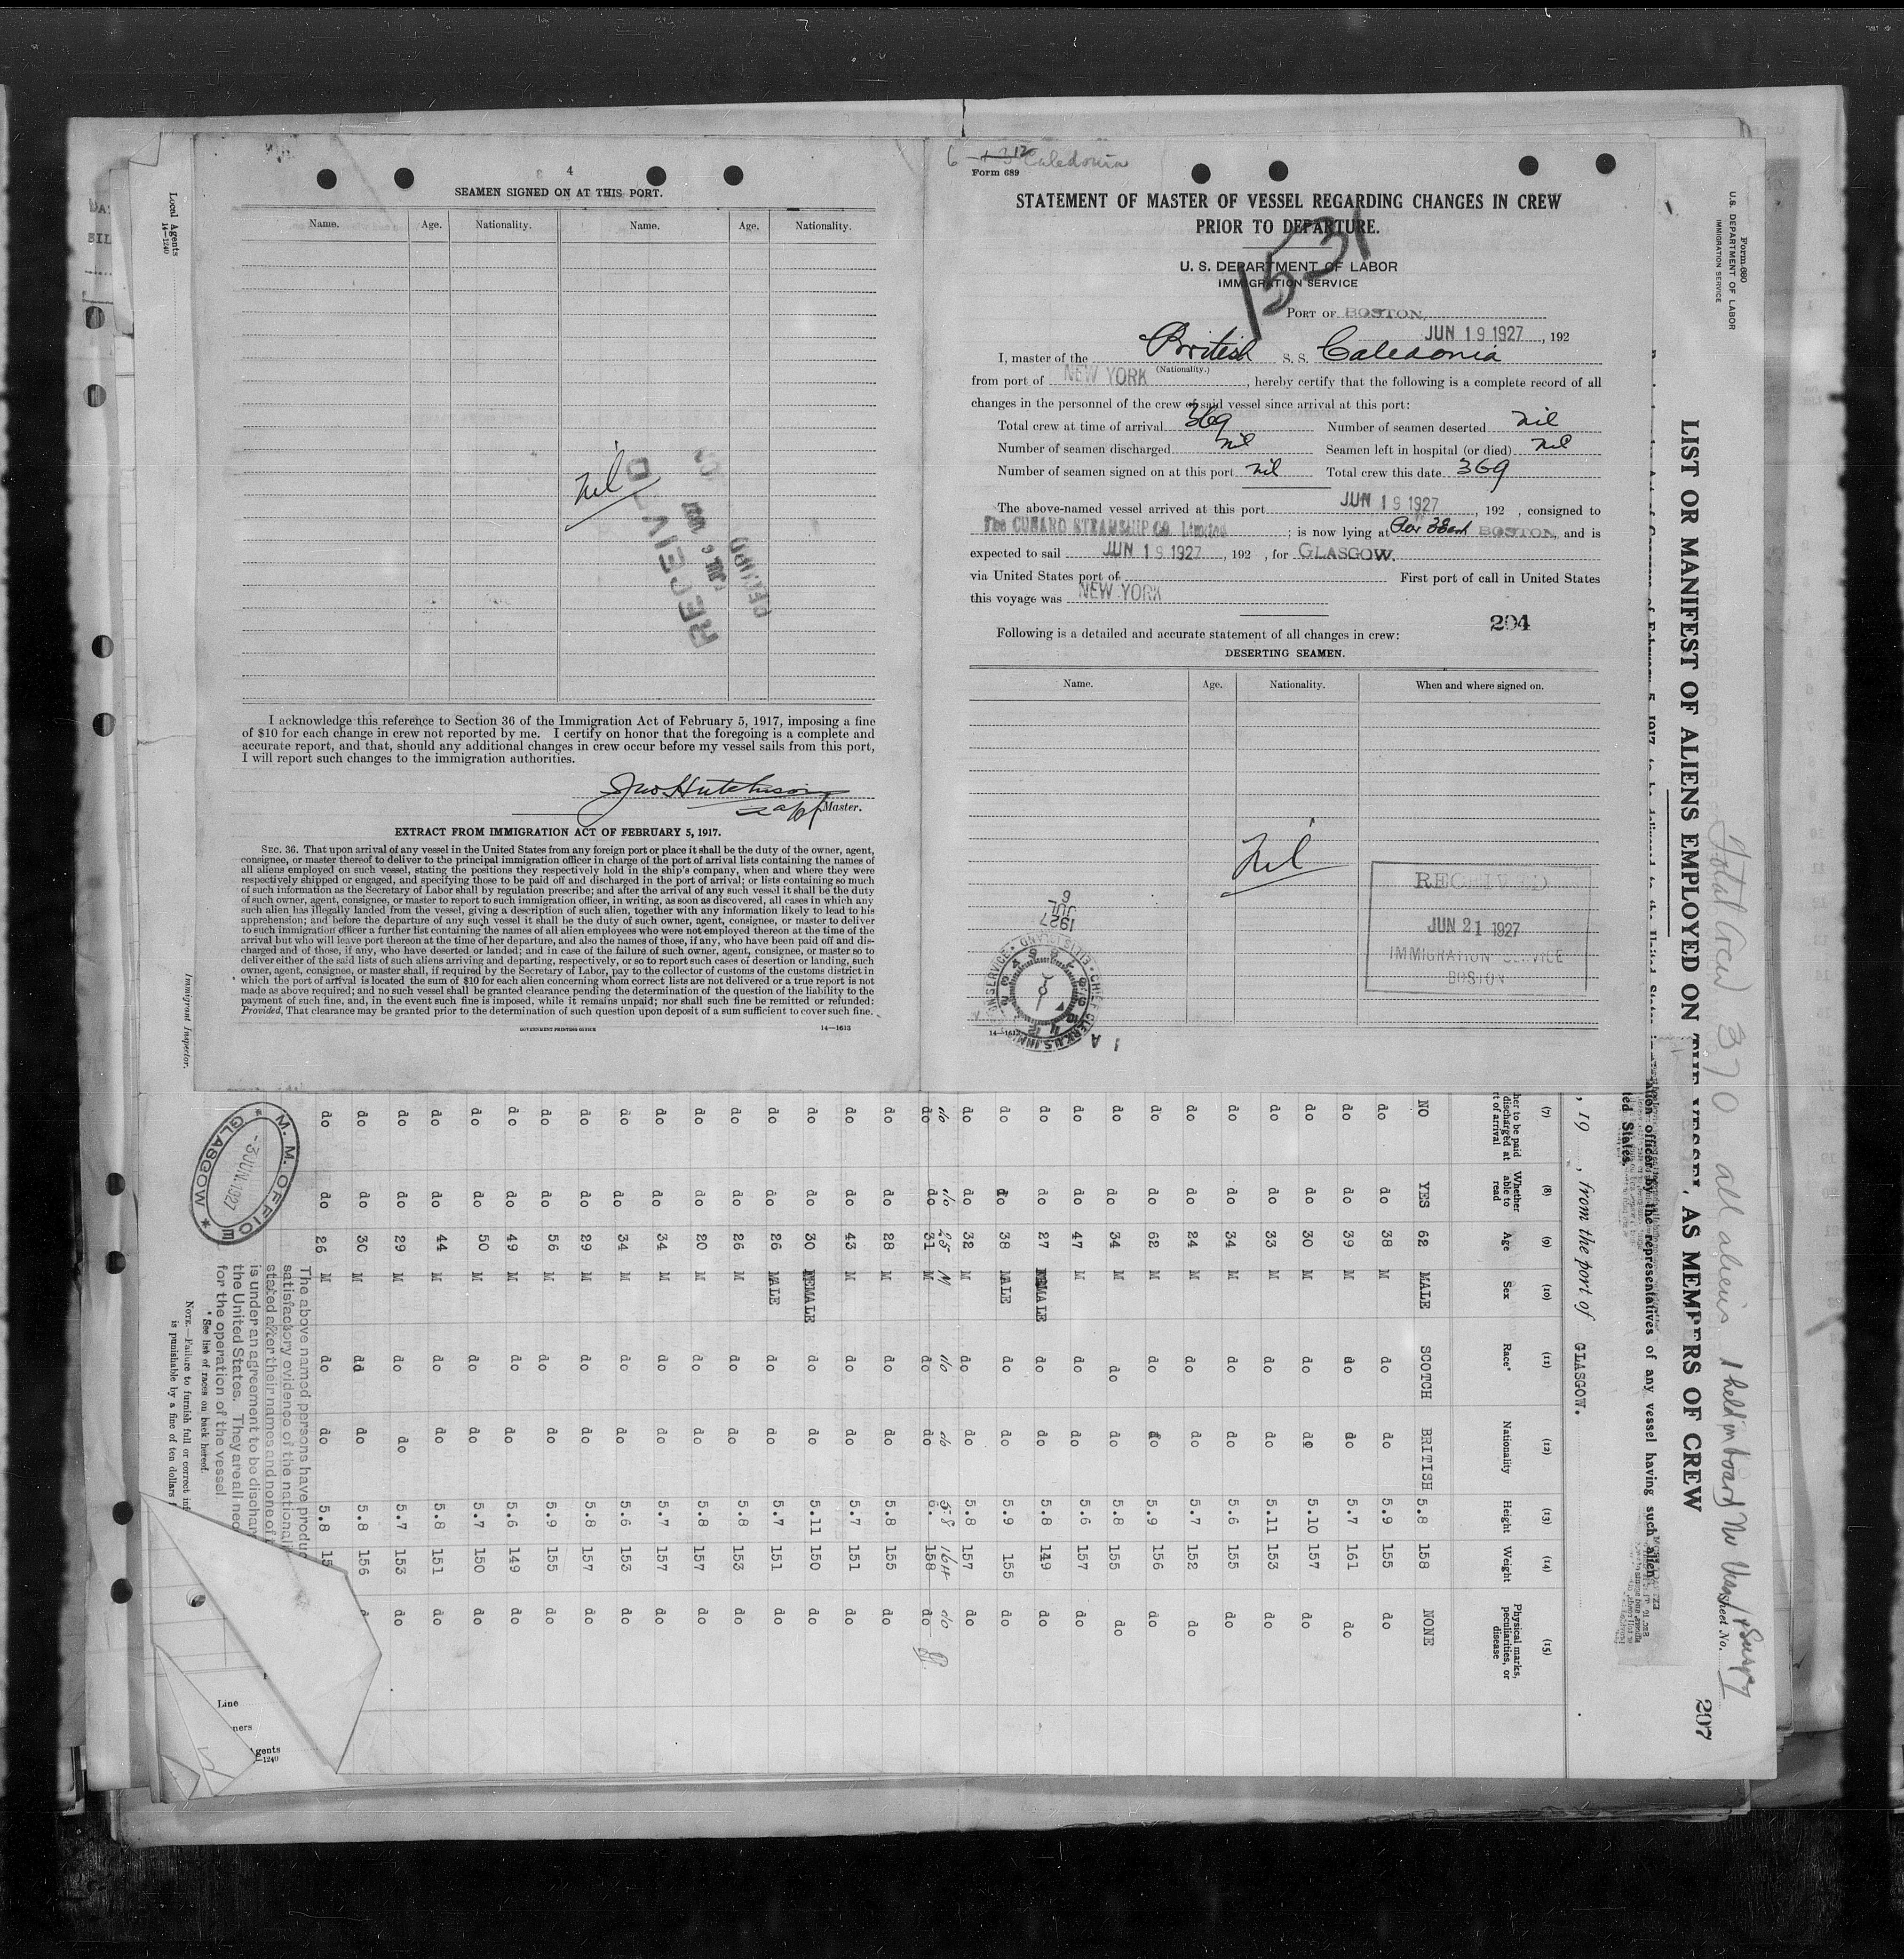 4
SEAMEN SIGNED ON AT THIS PORT.
Name. Age. Nationality. Name. Age. Nationality.
nil
RECEIVED
I acknowledge this reference to Section 36 of the Immigration Act of February 5, 1917, imposing a fine
of $10 for each change in crew not reported by me. I certify on honor that the foregoing is a complete and
accurate report, and that, should any additional changes in crew occur before my vessel sails from this port,
I will report such changes to the immigration authorities.
Jno Hutchison
Master.
EXTRACT FROM IMMIGRATION ACT OF FEBRUARY 5, 1917.
SEC. 36. That upon arrival of any vessel in the United States from any foreign port or place it shall be the duty of the owner, agent,
consignee, or master thereof to deliver to the principal immigration officer in charge of the port of arrival lists containing the names of
all aliens employed on such vessel, stating the positions they respectively hold in the ship's company, when and where they were
respectively shipped or engaged, and specifying those to be paid off and discharged in the port of arrival; or lists containing so much
of such information as the Secretary of Labor shall by regulation prescribe; and after the arrival of any such vessel it shall be the duty
of such owner, agent, consignee, or master to report to such immigration officer, in writing, as soon as discovered, all cases in which any
such alien has illegally landed from the vessel, giving a description of such alien, together with any information likely to lead to his
apprehension; and before the departure of any such vessel it shall be the duty of such owner, agent, consignee, or master to deliver
to such immigration officer a further list containing the names of all alien employees who were not employed thereon at the time of the
arrival but who will leave port thereon at the time of her departure, and also the names of those, if any, who have been paid off and dis-
charged and of those, if any, who have deserted or landed; and in case of the failure of such owner, agent, consignee, or master so to
deliver either of the said lists of such aliens arriving and departing, respectively, or so to report such cases of desertion or landing, such
owner, agent, consignee, or master shall, if required by the Secretary of Labor, pay to the collector of customs of the customs district in
which the port of arrival is located the sum of $10 for each alien concerning whom correct lists are not delivered or a true report is not
made as above required; and no such vessel shall be granted clearance pending the determination of the question of the liability to the
payment of such fine, and, in the event such fine is imposed, while it remains unpaid; nor shall such fine be remitted or refunded:
Provided, That clearance may be granted prior to the determination of such question upon deposit of a sum sufficient to cover such fine.
GOVERNMENT PRINTING OFFICE 14—1613
6 Caledonia
Form 689
STATEMENT OF MASTER OF VESSEL REGARDING CHANGES IN CREW
PRIOR TO DEPARTURE.
1531
U. S. DEPARTMENT OF LABOR
IMMIGRATION SERVICE
PORT OF BOSTON,
JUN 19 1927, 192
I, master of the British S. S. Caledonia
(Nationality.)
from port of NEW YORK, hereby certify that the following is a complete record of all
changes in the personnel of the crew of said vessel since arrival at this port:
Total crew at time of arrival 369 Number of seamen deserted nil
Number of seamen discharged nil Seamen left in hospital (or died) nil
Number of seamen signed on at this port nil Total crew this date 369
The above-named vessel arrived at this port JUN 19 1927, 192 , consigned to
The CUNARD STEAMSHIP CO. Limited; is now lying at BOSTON, and is
expected to sail JUN 19 1927, 192 , for GLASGOW.
via United States port of First port of call in United States
this voyage was NEW YORK
204
Following is a detailed and accurate statement of all changes in crew:
DESERTING SEAMEN.
Name. Age. Nationality. When and where signed on.
nil
RECEIVED
JUN 21 1927
IMMIGRATION SERVICE
BOSTON
1927
JUL
6
14—1613
Local Agents
14—1240
Immigrant Inspector.
Form 680
U.S. DEPARTMENT OF LABOR
IMMIGRATION SERVICE
Total Crew 370 all aliens 1 held on board
Sheet No.
207
LIST OR MANIFEST OF ALIENS EMPLOYED ON THE VESSEL, AS MEMBERS OF CREW
alien officer by the representatives of any vessel having such alien
ted States.
, 19 , from the port of GLASGOW.
(7) (8) (9) (10) (11) (12) (13) (14) (15)
her to be paid discharged at t of arrival Whether able to read Age Sex Race* Nationality Height Weight Physical marks, peculiarities, or disease
NO YES 62 MALE SCOTCH BRITISH 5.8 158 NONE
do do 38 M do do 5.9 155 do
do do 39 M do do 5.7 161 do
do do 30 M do do 5.10 157 do
do do 33 M do do 5.11 153 do
do do 34 M do do 5.6 155 do
do do 24 M do do 5.7 152 do
do do 62 M do do 5.9 156 do
do do 34 M do do 5.8 155 do
do do 47 M do do 5.6 157 do
do do 27 MALE do do 5.8 149 do
do do 38 MALE do do 5.9 155 do
do do 32 M do do 5.8 157 do
do do 25 M do do 5.8 164 do
do do 31 M do do 6. 158 do
do do 28 M do do 5.8 155 do
do do 43 M do do 5.7 151 do
do do 30 FEMALE do do 5.11 150 do
do do 26 MALE do do 5.7 151 do
do do 26 M do do 5.8 153 do
do do 20 M do do 5.8 157 do
do do 34 M do do 5.7 157 do
do do 34 M do do 5.6 153 do
do do 29 M do do 5.8 157 do
do do 56 M do do 5.9 155 do
do do 49 M do do 5.6 149 do
do do 50 M do do 5.7 150 do
do do 44 M do do 5.8 151 do
do do 29 M do do 5.7 153 do
do do 30 M do do 5.8 156
do do 26 M do do 5.8 15
M. M. OFFICE
-3 JUN. 1927
GLASGOW
The above named persons have produc
satisfactory evidence of the national
stated after their names and none of
is under an agreement to be dischar
the United States. They are all nec
for the operation of the vessel
* See list of races on back hereof.
NOTE.—Failure to furnish full or correct inf
is punishable by a fine of ten dollars
Line
ners
gents
—1240